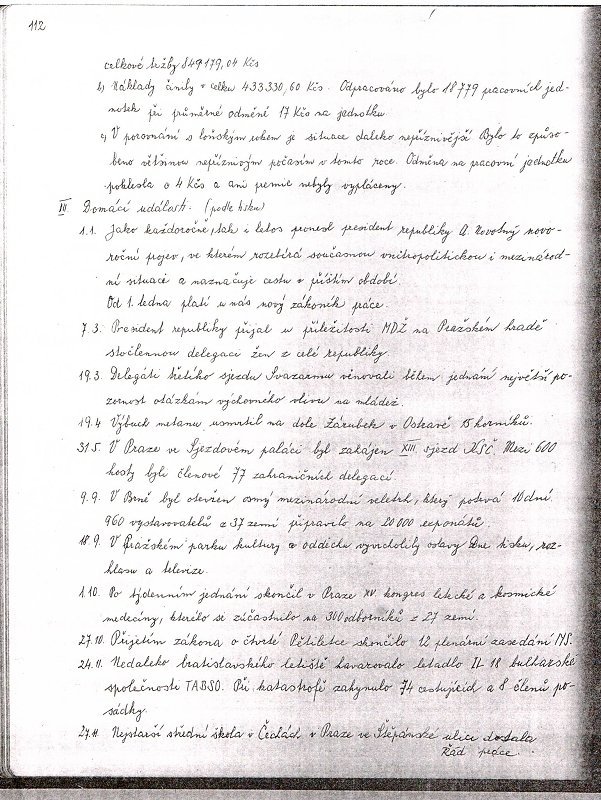 112
celkové tržby 849179,04 Kčs
b) Náklady činily v celku 433.330,60 Kčs. Odpracováno bylo 18779 pracovních jed-
notek při průměrné odměně 17 Kčs na jednotku.
c) V porovnání s loňským rokem je situace daleko nepříznivější Bylo to způso-
beno většinou nepříznivým počasím v tomto roce. Odměna na pracovní jednotku
poklesla o 4 Kčs a ani premie nebyly vypláceny.
III. Domácí události. (podle tisku)
1.1. Jako každoročně, tak i letos pronesl president republiky A. Novotný novo-
roční projev, ve kterém rozebírá současnou vnitropolitickou i mezinárod-
ní situaci a naznačuje cestu v příštím období.
Od 1. ledna platí u nás nový zákoník práce.
7.3. President republiky přijal u příležitosti MDŽ na Pražském hradě
stočlennou delegaci žen z celé republiky
19.3. Delegáti třetího sjezdu Svazarmu věnovali během jednání největší po-
zornost otázkám výchovného vlivu na mládež.
19.4 Výbuch metanu usmrtil na dole Zárubek v Ostravě 15 horníků.
31.5. V Praze ve Sjezdovém paláci byl zahájen XIII. sjezd KSČ. Mezi 600
hosty byli členové 77 zahraničních delegací
9.9. V Brně byl otevřen osmý mezinárodní veletrh, který potrvá 10 dní.
960 vystavovatelů z 37 zemí připravilo na 20000 exponátů.
18.9. V Pražském parku kultury a oddechu vyvrcholily oslavy Dne tisku, roz-
hlasu a televize.
1.10. Po týdenním jednání skončil v Praze XV. kongres letecké a kosmické
medecíny, kterého se zúčastnilo na 300 odborníků z 27 zemí.
27.10. Přijetím zákona o čtvrté Pětiletce skončilo 12 plenární zasedání NS.
24.11. Nedaleko bratislavského letiště havarovalo letadlo IL 18 bulharské
společnosti TABSO. Při katastrofě zahynulo 74 cestujících a 8 členů po-
sádky.
27.11 Nejstarší střední škola v Čechách v Praze ve Štěpánské ulici dostala
Řád práce.